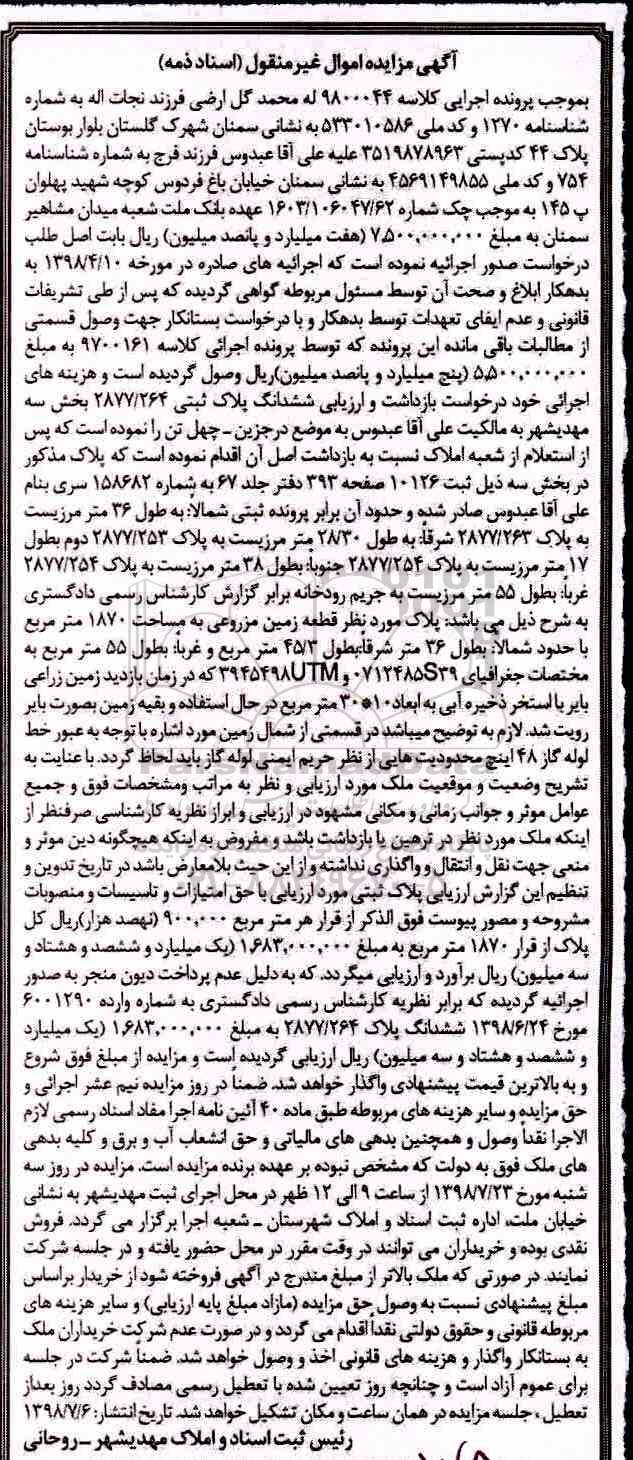 آگهی مزایده اموال غیرمنقول (اسناد ذمه)
بموجب پرونده اجرایی کلاسه ۹۸۰۰۰۴۴ له محمد گل ارضی فرزند نجات اله به شماره
شناسنامه ۱۲۷۰ و کد ملی ۵۳۳۰۱۰۵۸۶ به نشانی سمنان شهرک گلستان بلوار بوستان
پلاک ۴۴ کدپستی ۳۵۱۹۸۷۸۹۶۳ علیه علی آقا عبدوس فرزند فرج به شماره شناسنامه
۷۵۴ و کد ملی ۴۵۶۹۱۴۹۸۵۵ به نشانی سمنان خیابان باغ فردوس کوچه شهید پهلوان
پ ۱۴۵ به موجب چک شماره ۱۶۰۳/۱۰۶۰۴۷/۶۲ عهده بانک ملت شعبه میدان مشاهیر
سمنان به مبلغ ۷,۵۰۰,۰۰۰,۰۰۰ (هفت میلیارد و پانصد میلیون) ریال بابت اصل طلب
درخواست صدور اجرائیه نموده است که اجرائیه های صادره در مورخه ۱۳۹۸/۴/۱۰ به
بدهکار ابلاغ و صحت آن توسط مسئول مربوطه گواهی گردیده که پس از طی تشریفات
قانونی و عدم ایفای تعهدات توسط بدهکار و با درخواست بستانکار جهت وصول قسمتی
از مطالبات باقی مانده این پرونده که توسط پرونده اجرائی کلاسه ۹۷۰۰۱۶۱ به مبلغ
۵,۵۰۰,۰۰۰,۰۰۰ (پنج میلیارد و پانصد میلیون)ریال وصول گردیده است و هزینه های
اجرائی خود درخواست بازداشت و ارزیابی ششدانگ پلاک ثبتی ۲۸۷۷/۲۶۴ بخش سه
مهدیشهر به مالکیت علی آقا عبدوس به موضع درجزین ـ چهل تن را نموده است که پس
از استعلام از شعبه املاک نسبت به بازداشت اصل آن اقدام نموده است که پلاک مذکور
در بخش سه ذیل ثبت ۱۰۱۲۶ صفحه ۳۹۳ دفتر جلد ۶۷ به شماره ۱۵۸۶۸۲ سری بنام
علی آقا عبدوس صادر شده و حدود آن برابر پرونده ثبتی شمالا: به طول ۳۶ متر مرزیست
به پلاک ۲۸۷۷/۲۶۳ شرقاً: به طول ۲۸/۳۰ متر مرزیست به پلاک ۲۸۷۷/۲۵۳ دوم بطول
۱۷ متر مرزیست به پلاک ۲۸۷۷/۲۵۴ جنوباً: بطول ۳۸ متر مرزیست به پلاک ۲۸۷۷/۲۵۴
غرباً: بطول ۵۵ متر مرزیست به حریم رودخانه برابر گزارش کارشناس رسمی دادگستری
به شرح ذیل می باشد: پلاک مورد نظر قطعه زمین مزروعی به مساحت ۱۸۷۰ متر مربع
با حدود شمالاً: بطول ۳۶ متر شرقاً:بطول ۴۵/۳ متر مربع و غرباً: بطول ۵۵ متر مربع به
مختصات جغرافیای ۰۷۱۲۴۸۵S۳۹ و ۳۹۴۵۴۹۸UTM که در زمان بازدید زمین زراعی
بایر با استخر ذخیره آبی به ابعاد۱۰*۳۰ متر مربع در حال استفاده و بقیه زمین بصورت بایر
رویت شد. لازم به توضیح میباشد در قسمتی از شمال زمین مورد اشاره با توجه به عبور خط
لوله گاز ۴۸ اینچ محدودیت هایی از نظر حریم ایمنی لوله گاز باید لحاظ گردد. با عنایت به
تشریح وضعیت و موقعیت ملک مورد ارزیابی و نظر به مراتب ومشخصات فوق و جمیع
عوامل موثر و جوانب زمانی و مکانی مشهود در ارزیابی و ابراز نظریه کارشناسی صرفنظر از
اینکه ملک مورد نظر در ترهین یا بازداشت باشد و مفروض به اینکه هیچگونه دین موثر و
منعی جهت نقل و انتقال و واگذاری نداشته و از این حیث بلامعارض باشد در تاریخ تدوین و
تنظیم این گزارش ارزیابی پلاک ثبتی مورد ارزیابی با حق امتیازات و تاسیسات و منصوبات
مشروحه و مصور پیوست فوق الذکر از قرار هر متر مربع ۹۰۰,۰۰۰ (نهصد هزار)ریال کل
پلاک از قرار ۱۸۷۰ متر مربع به مبلغ ۱,۶۸۳,۰۰۰,۰۰۰ (یک میلیارد و ششصد و هشتاد و
سه میلیون) ریال برآورد و ارزیابی میگردد. که به دلیل عدم پرداخت دیون منجر به صدور
اجرائیه گردیده که برابر نظریه کارشناس رسمی دادگستری به شماره وارده ۶۰۰۱۲۹۰
مورخ ۱۳۹۸/۶/۲۴ ششدانگ پلاک ۲۸۷۷/۲۶۴ به مبلغ ۱,۶۸۳,۰۰۰,۰۰۰ (یک میلیارد
و ششصد و هشتاد و سه میلیون) ریال ارزیابی گردیده است و مزایده از مبلغ فوق شروع
و به بالاترین قیمت پیشنهادی واگذار خواهد شد. ضمناً در روز مزایده نیم عشر اجرائی و
حق مزایده و سایر هزینه های مربوطه طبق ماده ۴۰ آئین نامه اجرا مفاد اسناد رسمی لازم
الاجرا نقداً وصول و همچنین بدهی های مالیاتی و حق انشعاب آب و برق و کلیه بدهی
های ملک فوق به دولت که مشخص نبوده بر عهده برنده مزایده است. مزایده در روز سه
شنبه مورخ ۱۳۹۸/۷/۲۳ از ساعت ۹ الی ۱۲ ظهر در محل اجرای ثبت مهدیشهر به نشانی
خیابان ملت، اداره ثبت اسناد و املاک شهرستان ـ شعبه اجرا برگزار می گردد. فروش
نقدی بوده و خریداران می توانند در وقت مقرر در محل حضور یافته و در جلسه شرکت
نمایند. در صورتی که ملک بالاتر از مبلغ مندرج در آگهی فروخته شود از خریدار براساس
مبلغ پیشنهادی نسبت به وصول حق مزایده (مازاد مبلغ پایه ارزیابی) و سایر هزینه های
مربوطه قانونی و حقوق دولتی نقداً اقدام می گردد و در صورت عدم شرکت خریداران ملک
به بستانکار واگذار و هزینه های قانونی اخذ و وصول خواهد شد. ضمناً شرکت در جلسه
برای عموم آزاد است و چنانچه روز تعیین شده با تعطیل رسمی مصادف گردد روز بعداز
تعطیل، جلسه مزایده در همان ساعت و مکان تشکیل خواهد شد. تاریخ انتشار: ۱۳۹۸/۷/۶
رئیس ثبت اسناد و املاک مهدیشهر ـ روحانی